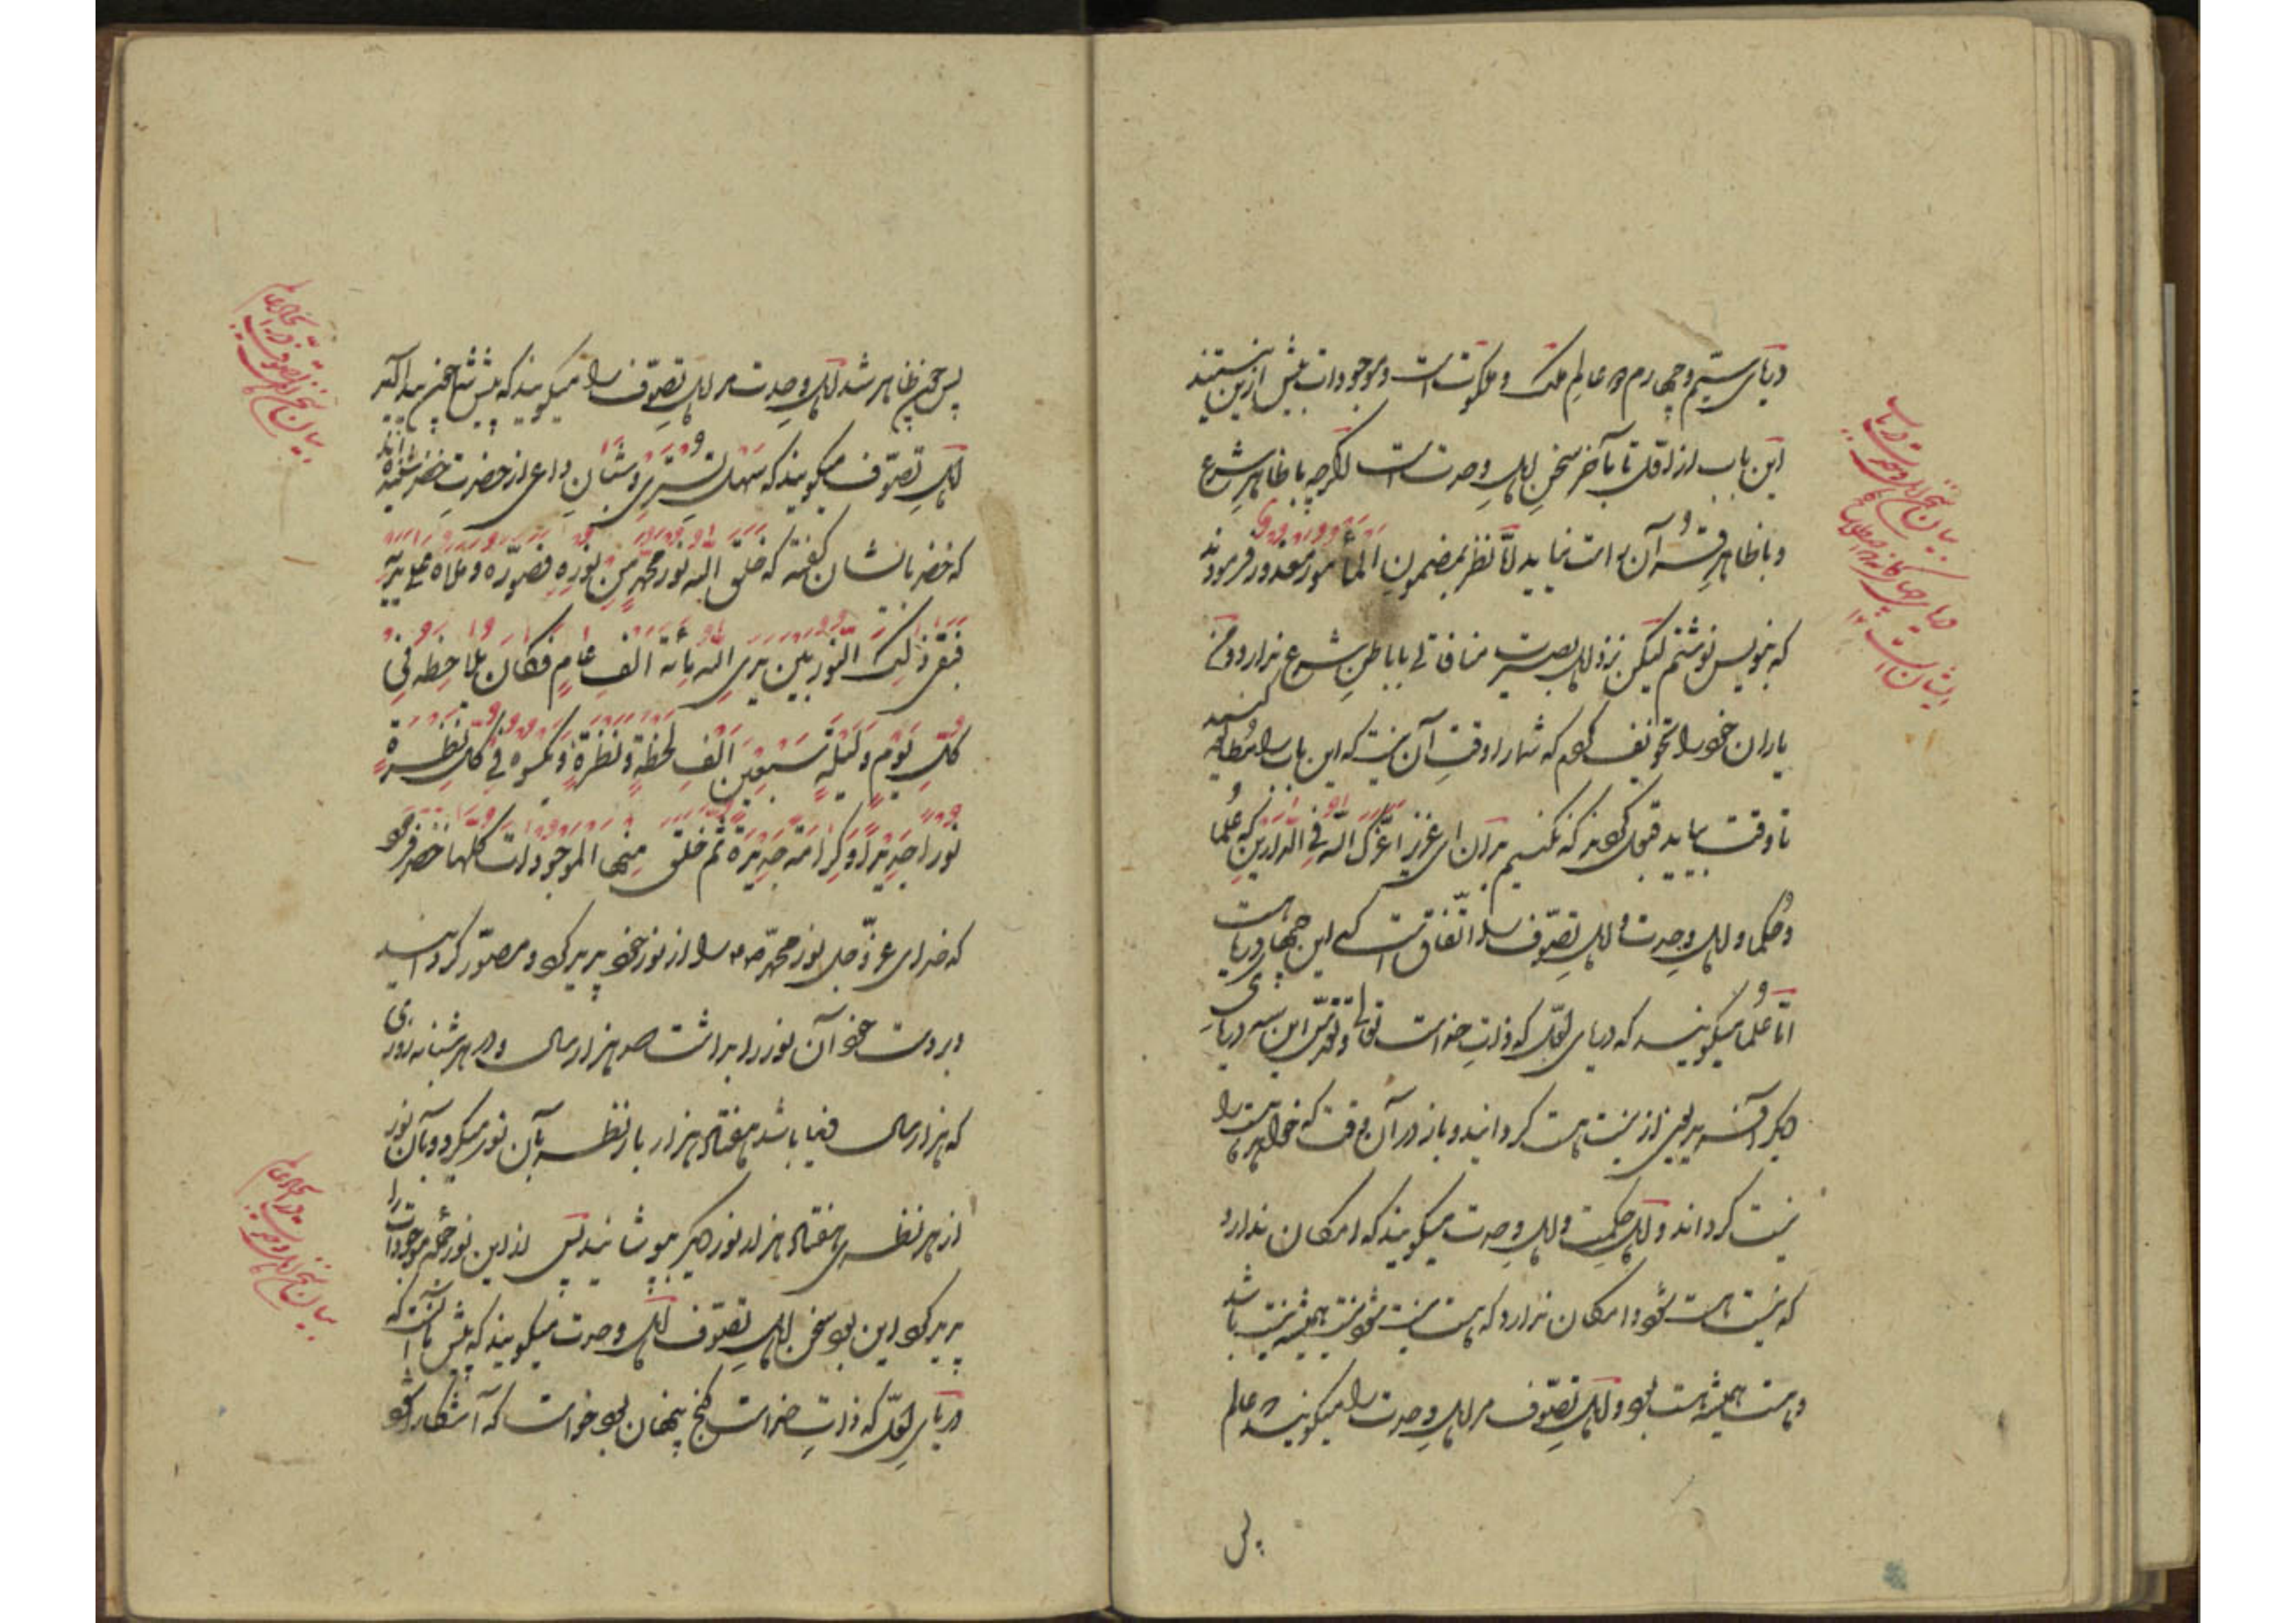 دریای سیّم و چهارم در عالم ملک و ملکوت است و موجودات بیش ازین نیستند
این باب از اوّل تا بآخر سخن اهل وحدت است اگرچه با ظاهر شرع
و با ظاهر قرآن راست نیاید امّا نظر بمضمون المأمور معذور فرمودند
که بنویس نوشتم لیکن نزد اهل بصیرت منافاتی با باطن شرع ندارد و من
یاران خود را تخویف کردم که شما را وقت آن نیست که این باب را مطالعه کنید
تا وقت بیاید قبول نکردند که نکنیم بدان ای عزیز اعزّک الله فی الدارین که علما
و حکما و اهل وحدت و اهل تصوّف را اتّفاق است که این چهار دریا هست
امّا علما میگویند که دریای اوّل که ذات خداست تعالی و تقدّس این سه دریای
دیگر آفرید یعنی از نیست هست گردانید و باز در آن وقت که خواهد هست را
نیست گرداند و اهل حکمت و اهل وحدت میگویند که امکان ندارد
که نیست هست شود و امکان ندارد که هست نیست شود نیست همیشه نیست باشد
و هست همیشه هست بود و اهل تصوّف مر اهل وحدت را میگویند که عالم
پس
بیان سخن اهل وحدت در باب
دریای چهارگانه
ایشان است
پس چون ظاهر شد اهل وحدت مر اهل تصوّف را میگویند که پیش شما چون پیدا آمد
اهل تصوّف میگویند که سهل تستری و شبان راعی از حضرت خضر شنیده‌اند
که خضر با ایشان گفته که خلق الله نور محمّد من نوره فصوّره و علاه علی یده
فبقی ذلک النور بین یدی الله مائة الف عام فکان یلاحظه فی
کلّ یوم و لیلة سبعین الف لحظة و نظرة و یکسوه فی کلّ نظرة
نورا جدیدا و کرامة جدیدة ثم خلق منها الموجودات کلّها خضر فرمود
که خدای عزّ و جل نور محمّد را از نور خود پدید کرد و مصوّر گردانید
و بر دست خود آن نور را بداشت صد هزار سال و در هر شبانه روزی
که هزار سال دنیا باشد هفتاد هزار بار نظر بآن نور میکرد و بآن نور
از هر نظری هفتاد هزار نور دیگر میپوشانید پس از این نور جمله موجودات را
پدید کرد این بود سخن اهل تصوّف اهل وحدت میگویند که پیش ما آنست که
دریای اوّل که ذات خداست گنج پنهان بود خواست که آشکارا شود
بیان سخن اهل تصوّف در
بیان سخن اهل وحدت در